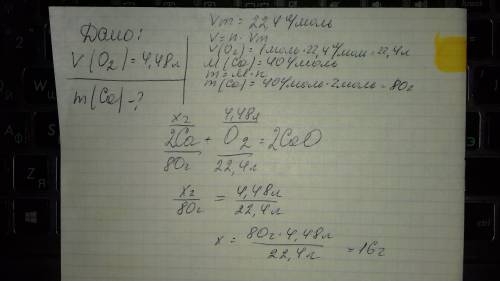 Дано:
V(O₂) = 4,48л
m(Ca) - ?
Vm = 22,4 л/моль
V = n · Vm
V(O₂) = 1 моль · 22,4 л/моль = 22,4 л
M(Ca) = 40 г/моль
m = M · n
m(Ca) = 40 г/моль · 2 моль = 80г
xг 4,48л
2Ca + O₂ = 2CaO
80г 22,4л
xг/80г = 4,48л/22,4л
x = 80г · 4,48л/22,4л = 16г